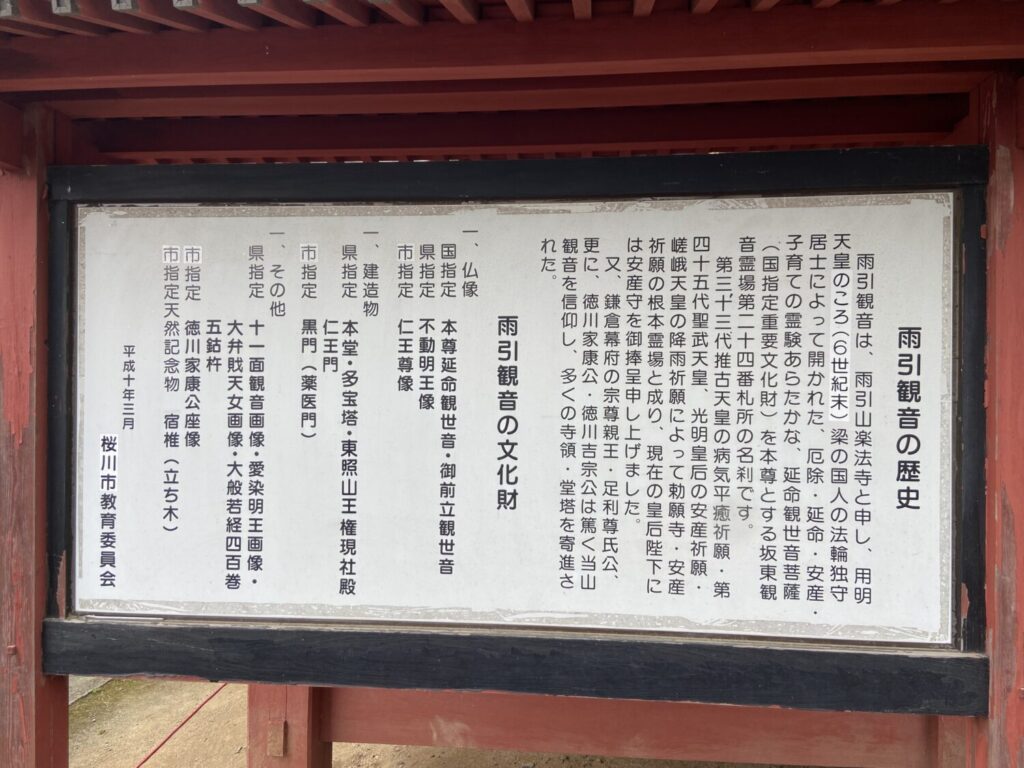 雨引観音の歴史
雨引観音は、雨引山楽法寺と申し、用明
天皇のころ（6世紀末）梁の国人の法輪独守
居士によって開かれた、厄除・延命・安産・
子育ての霊験あらたかな、延命観世音菩薩
（国指定重要文化財）を本尊とする坂東観
音霊場第二十四番札所の名刹です。
第三十三代推古天皇の病気平癒祈願・第
四十五代聖武天皇、光明皇后の安産祈願・
嵯峨天皇の降雨祈願によって勅願寺・安産
祈願の根本霊場と成り、現在の皇后陛下に
は安産守を御捧呈申し上げました。
又、鎌倉幕府の宗尊親王・足利尊氏公、
更に、徳川家康公・徳川吉宗公は篤く当山
観音を信仰し、多くの寺領・堂塔を寄進さ
れた。
雨引観音の文化財
一、仏像
国指定 本尊延命観世音・御前立観世音
県指定 不動明王像
市指定 仁王尊像
一、建造物
県指定 本堂・多宝塔・東照山王権現社殿
仁王門
市指定 黒門（薬医門）
一、その他
県指定 十一面観音画像・愛染明王画像・
大弁財天女画像・大般若経四百巻
五鈷杵
市指定 徳川家康公座像
市指定天然記念物 宿椎（立ち木）
平成十年三月
桜川市教育委員会